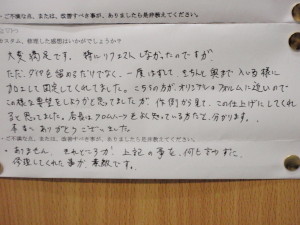 ご不満な点、または、改善すべき事が、ありましたら是非教えてください。
カスタム、修理した感想はいかがでしょうか?
大変満足です。特にリクエストしなかったのですが、
ただ、ダイヤを留めるだけでなく、一度はずして、きちんと奥まで入る様に
加工して固定してくれてました。こちらの方が、オリジナルフォルムに近いので
この様な要望をしようと思ってましたが、作例から見て、この仕上げにしてくれ
ると思ってました。店長はクロムハーツをよく知っている方だと、分かります。
本当にありがとうございました。
ご不満な点、または、改善すべき事が、ありましたら是非教えてください。
・ありません。それどころか、上記の事を、何も言わずに、
修理してくれた事が素敵です。